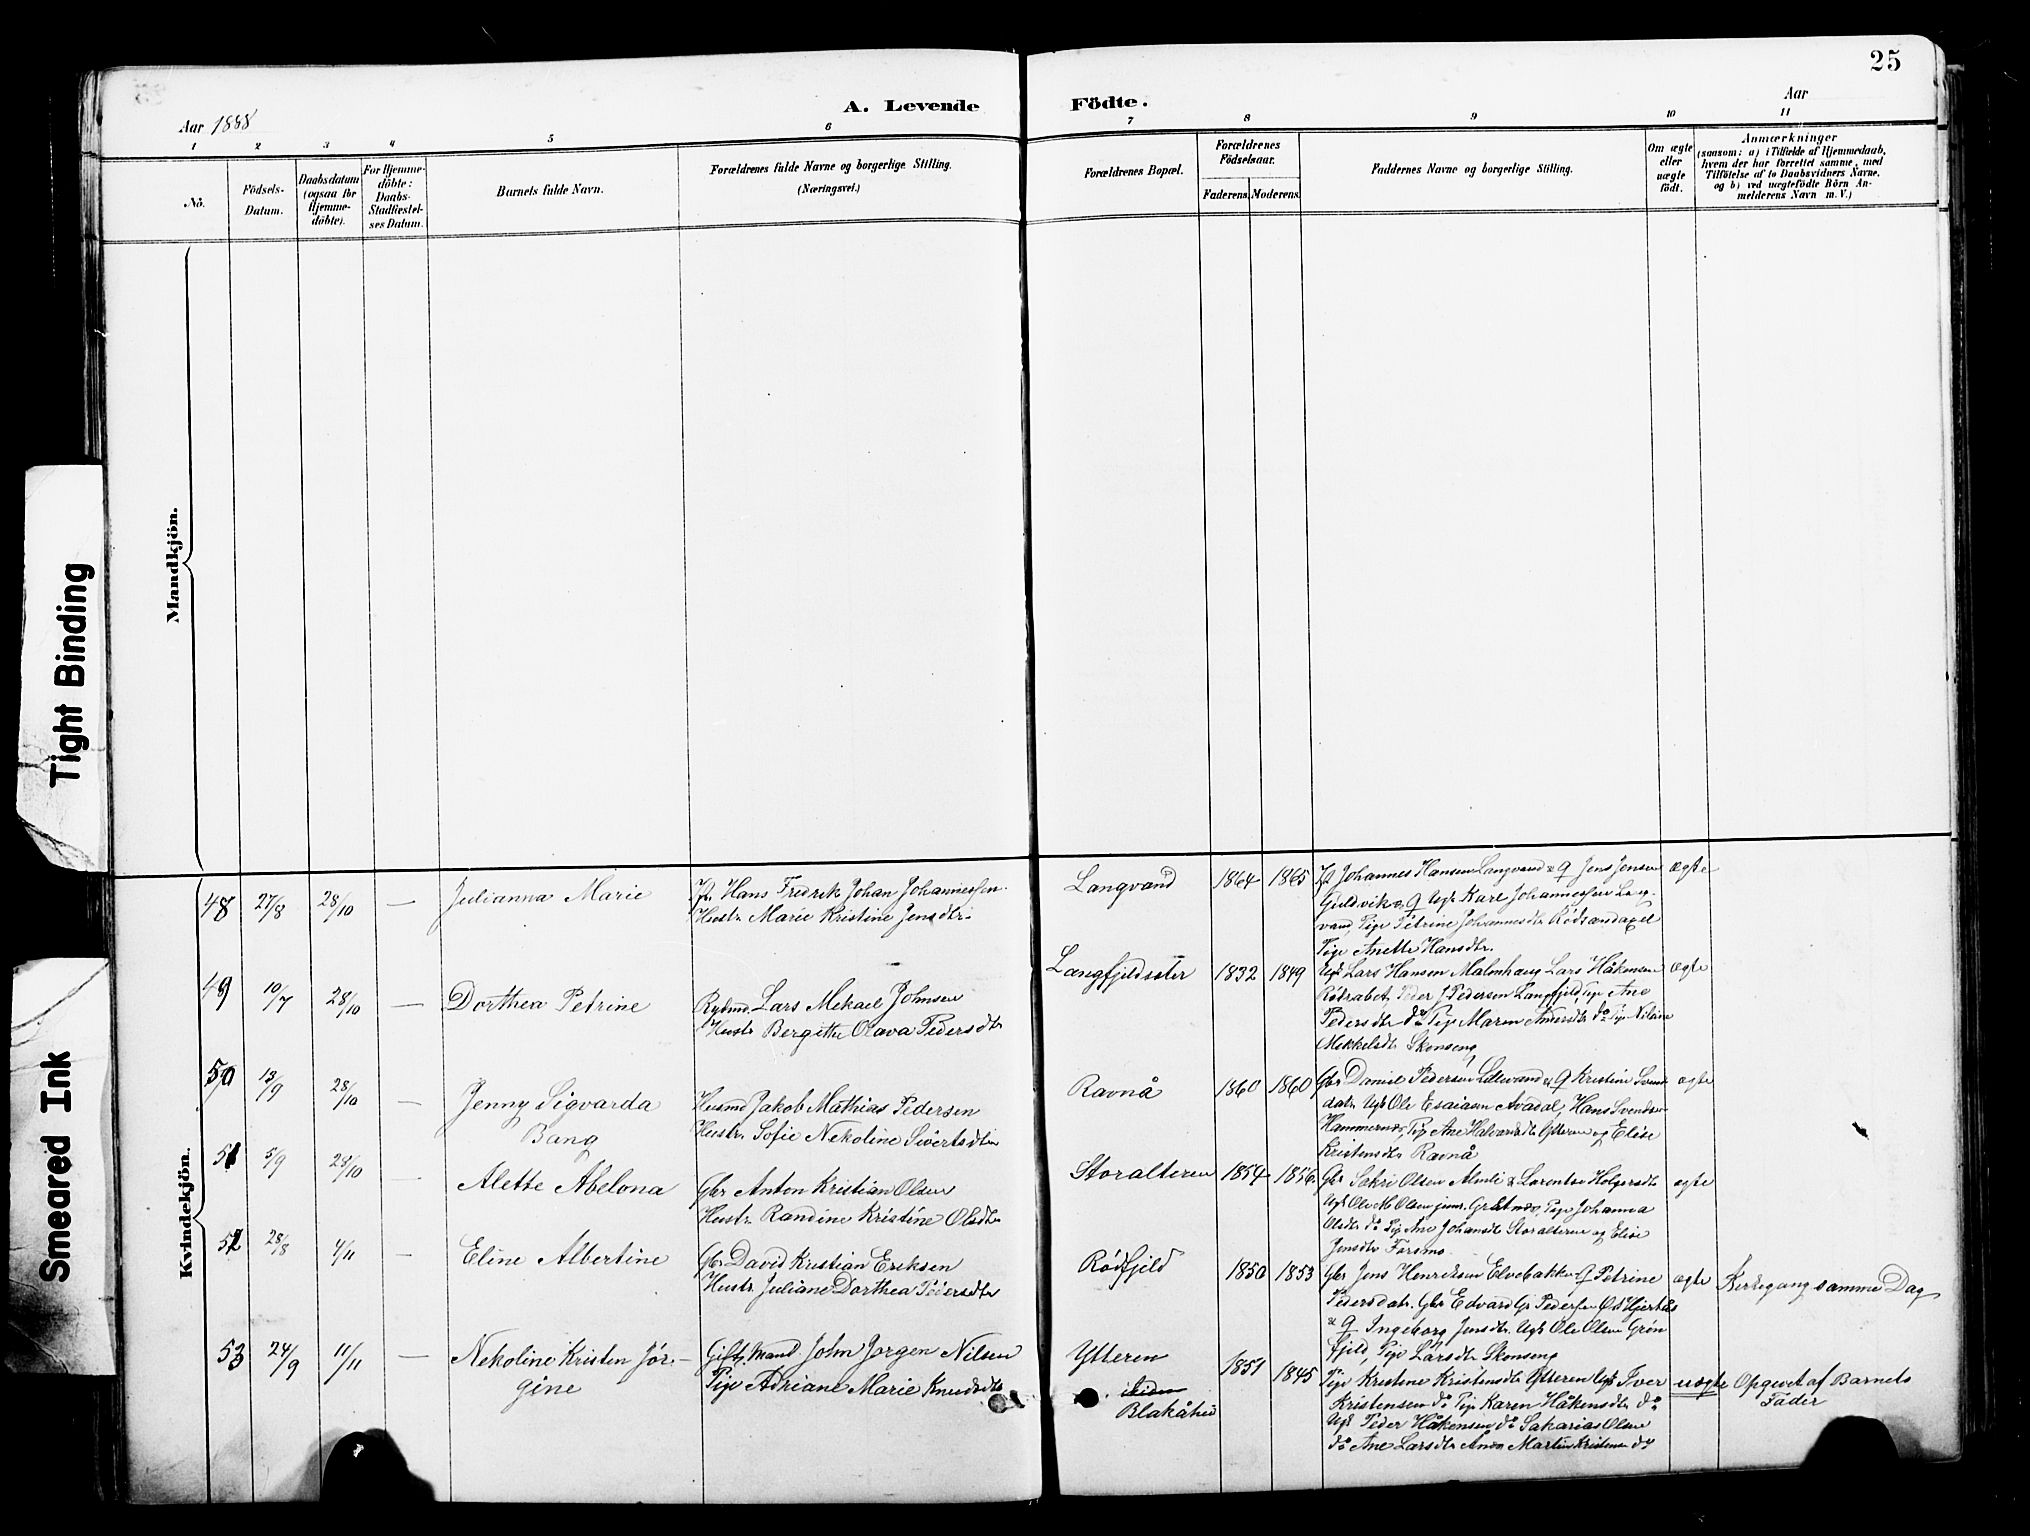 25
A. Levende Födte.
Aar 1888
Aar
1 2 3 4 5 6 7 8 9 10 11
No.
Födsels-Datum.
Daabsdatum (ogsaa for Hjemmedöbte).
For Hjemmedöbte: Daabs-Stadfæstelses Datum.
Barnets fulde Navn.
Forældrenes fulde Navne og borgerlige Stilling. (Næringsvei.)
Forældrenes Bopæl.
Forældrenes Födselsaar.
Faderens. Moderens.
Faddernes Navne og borgerlige Stilling.
Om ægte eller uægte födt.
Anmærkninger
(saasom: a) i Tilfælde af Hjemmedaab, hvem der har forrettet samme, med Tilföielse af to Daabsvidners Navne, og b) ved uægtefödte Börn Anmelderens Navn m. V.)
Mandkjön.
Tight Binding
Smeared Ink
Kvindekjön.
48 27/8 28/10 — Julianna Marie
Hans Fredrik Johan Johannessen
Hustr. Marie Kristine Jensdtr.
Langvand 1864 1865
Johannes Hansen Langvand & Q Jens Jensen
Guldvik & Q Ugk Karl Johannessen Lang-
vand, Pige Petrine Johannesdtr
Pige Anette Hansdtr.
ægte
49 10/7 28/10 — Dorthea Petrine
Rydmd. Lars Mekael Johnsen
Hustr Bergitte Olava Pedersdtr
Langfjeldsæter 1832 1849
Ugk Lars Hansen Malmhaug Lars Håkensen
Peder J Pedersen Langfjeld, Pige Ane
Pedersdtr do Pige Maren do Pig.
Mekkelsdtr Skonseng
ægte
50 13/9 28/10 — Jenny Sigvarda
Bang
Husmd Jakob Mathias Pedersen
Hustr. Sofie Nekoline Sivertsdtr
Ravnå 1860 1860
Gbr Daniel Pedersen & Q Kristine Svends
datr. Ugk Ole Esaiasen Avadal, Hans Svendsen
Hammernes, Pig Ane Halvardsdtr Ytteren og Elise
Kristensdtr Ravnå
ægte
51 5/9 28/10 — Alette Abelona
Gbr Anton Kristian Olsen
Hustr. Randine Kristine Olsdtr
Storalteren 1854 1856
Gbr Sakri Olsen & Larentse Holgersdtr
Ugk Ole M Olsen junr. Pige Johanna
Olsdtr do Pig Ane Johansdtr Storalteren og Elise
Jensdtr Forsmo
ægte
52 28/8 4/11 — Eline Albertine
Gbr David Kristian Eriksen
Hustr Juliane Dorthea Pedersdtr
Rødfjeld 1850 1853
Gbr Jens Henriksen Elvebakken Q Petrine
Pedersdatr. Gbr Edvard Gr Pedersen
& Q Ingeborg Jensdtr Ugk Ole Olsen Grøn
fjeld, Pige Larsdtr Skonseng
ægte
Kirkegang samme Dag
53 24/9 11/11 — Nekoline Kristen Jør-
gine
Gift Mand John Jørgen Nilsen
Pige Adriane Marie Knudsdtr
Ytteren
Blakåhei
1851 1845
Pige Kristine Kristensdtr Ytteren Ugk Iver
Kristensen do Pig Karen Håkensdtr do
Ugk Peder Håkensen do Sakarias Olsen
do Ane Larsdtr Martin Kristensen do
uægte
Opgivet af Barnets
Fader